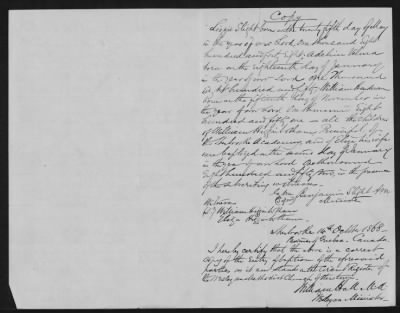 Copy
Lizzie Slight born on the twenty fifth day of May
in the year of our Lord, One thousand eight
hundred and forty eight, Adelin
born on the eighteenth day of January
in the year of our Lord one thousand
hundred and fifty William Hudson
born on the fifteenth day of November in
the year of our Lord one thousand eight
hundred and fifty one - all the children
of William Higinbotham, Principal of
the Sherbrooke Academy, and Eliza his wife
were baptized on the day of January
in the year of our Lord one thousand
eight hundred and fifty two, in the presence
of the subscribing witnesses.
By me Benjamin Slight A M
Minister
Witnesses
William Higinbotham
Eliza Higinbotham
Sherbrooke 14th October 1868
Province of Quebec. Canada.
I hereby certify that the above is a correct
copy of the Entry of baptism of the aforesaid
parties, as it now stands in the Register
of the Wesleyan Methodist Church of
William Hall M.A
Wesleyan Minister